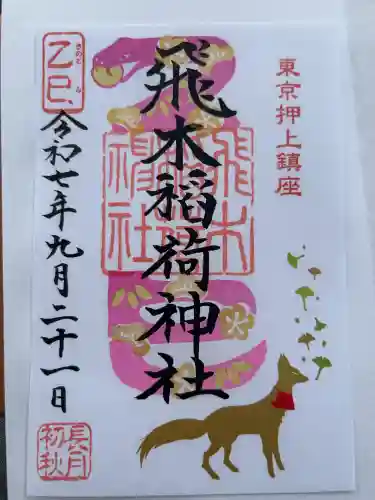 東京押上鎮座
飛木稲荷神社
飛木
稲荷
神社
きのと み
乙巳
令和七年九月二十一日
長月
初秋